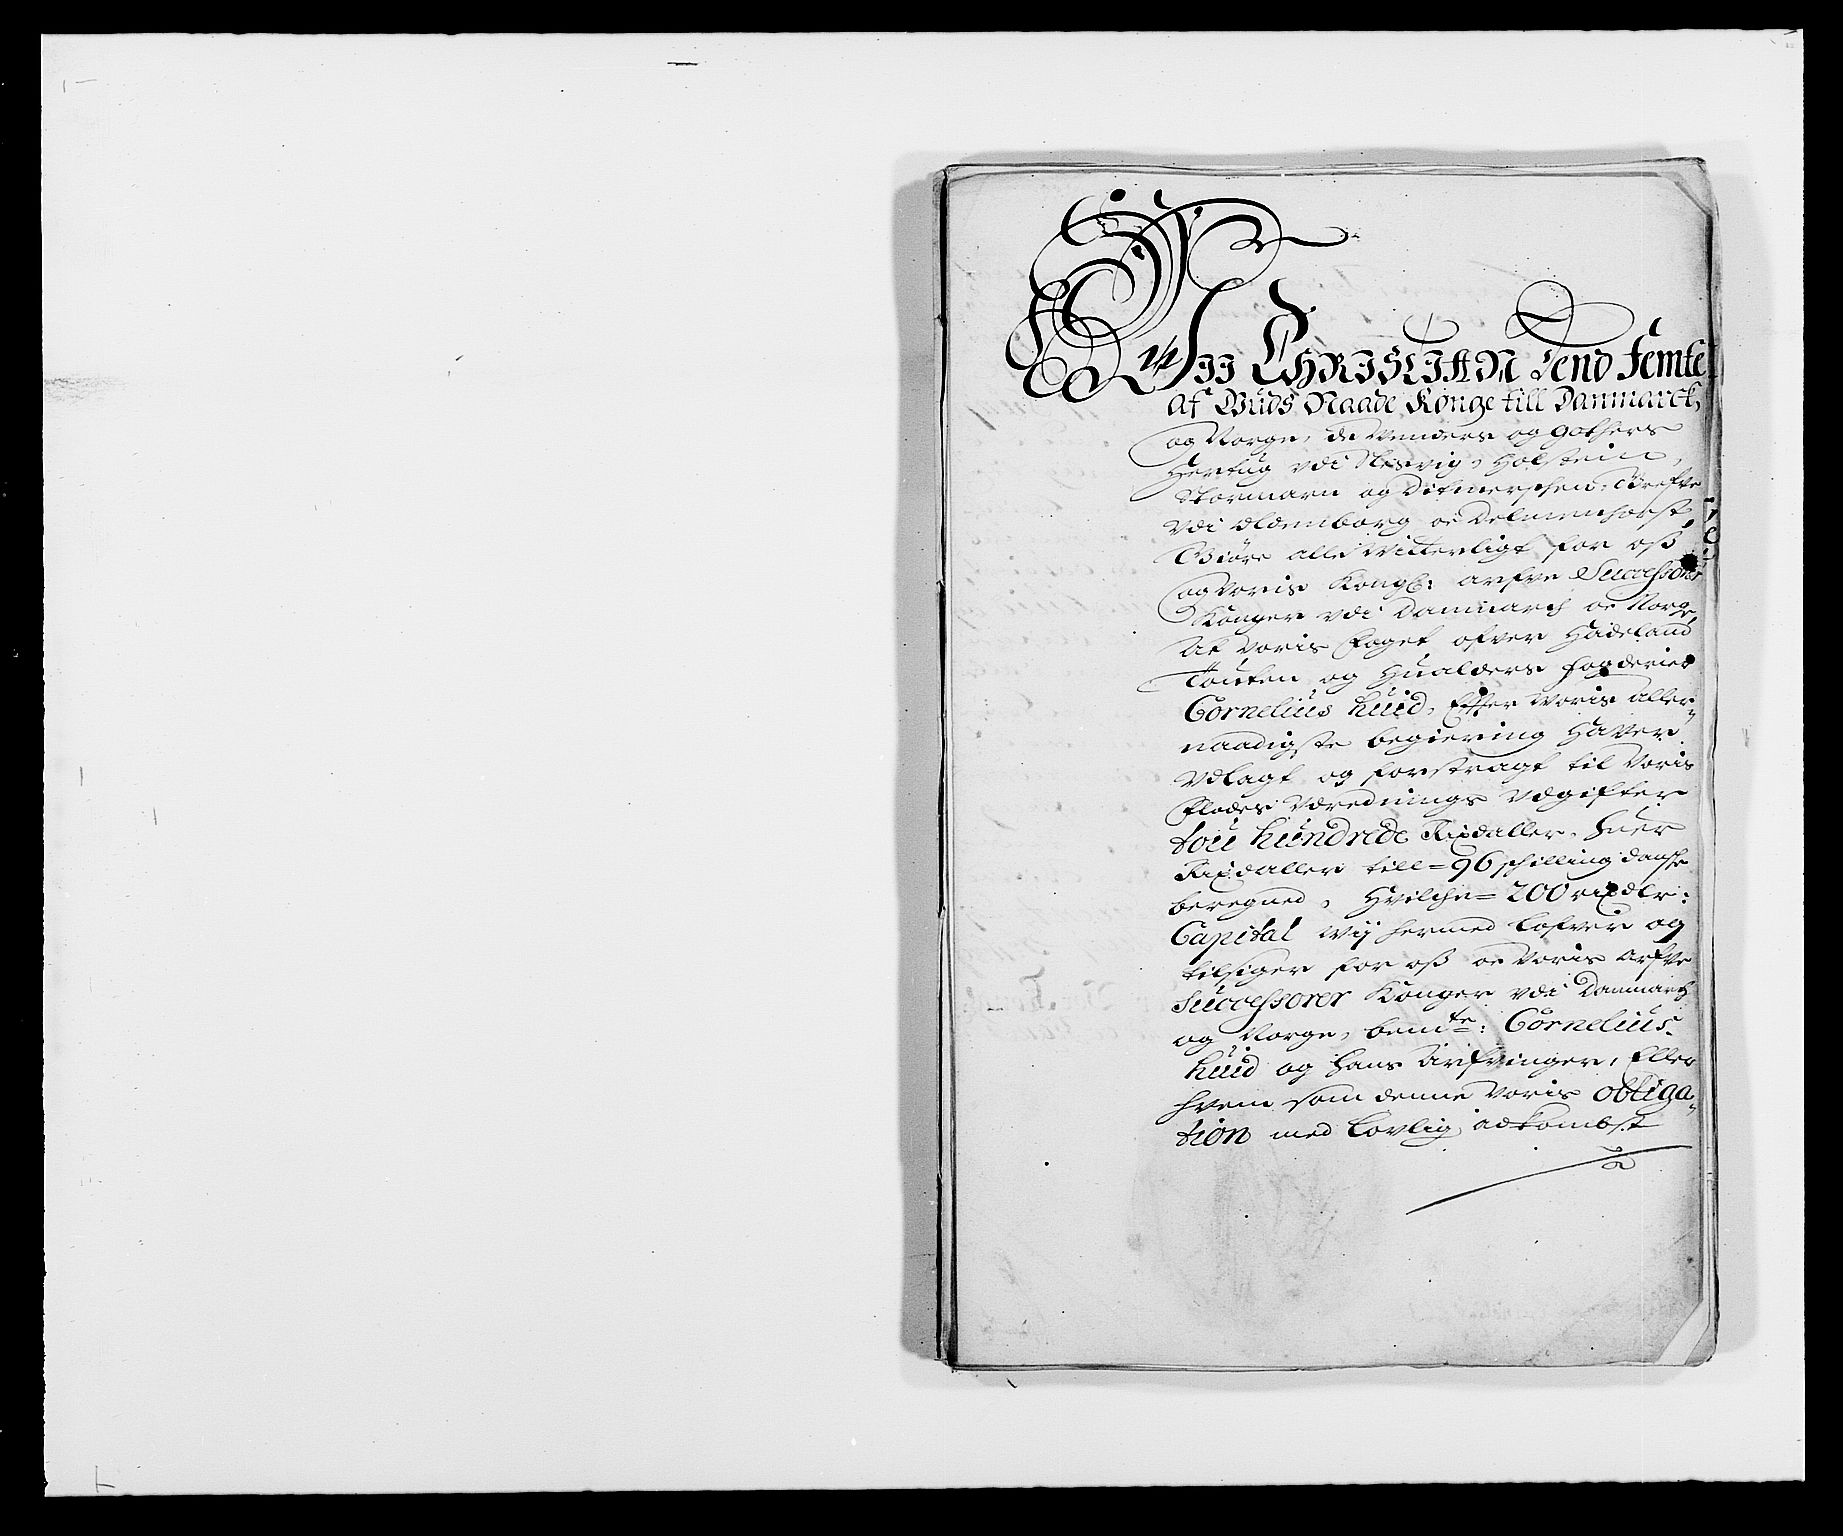 Wii CHRISTIAN Dend Femte
Af Guds Naade Konge till Danmarck,
og Norge, de Wenders og Gothers
Hertug vdi Slesvig, Holstein,
Stormarn og Ditmerschen, Grefve
vdi Oldenborg oc Delmenhorst,
Giöre alle Witterligt for oss
og voris Kongl: arfve Successorer
Konger vdi Danmarch oc Norge,
At voris foget ofver Hadeland
Touten og Hualders fogderier
Cornelius Huid, Efter Woris aller-
naadigste begiering Haver
vdlagt og forstragt til Voris
Flodes Vdrednings Vdgifter
tou hundrede Rixdaller, huer
Rixdaller till = 96 schilling danske
beregned, Hvilche = 200 rixdlr:
Capital Wij hermed Lofver og
tilsiger for oss oc Voris arfve
Successorer Konger vdi Danmarch
og Norge, bemte: Cornelius
Huid og hans Arfvinger, Eller
hvem som denne Voris obliga-
tion med Lovlig adkombst